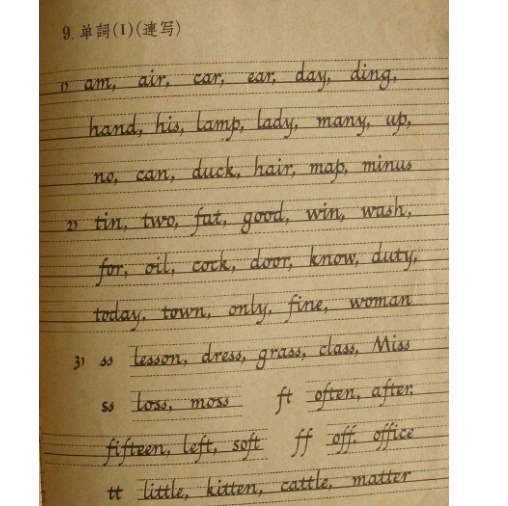 9. 单詞(I)(連写)
1) am, air, car, ear, day, ding,
hand, his, lamp, lady, many, up,
no, can, duck, hair, map, minus
2) tin, two, fat, good, win, wash,
for, oil, cock, door, know, duty,
today, town, only, fine, woman
3) ss lesson, dress, grass, class, Miss
ss loss, moss ft often, after,
fifteen, left, soft ff off, office
tt little, kitten, cattle, matter